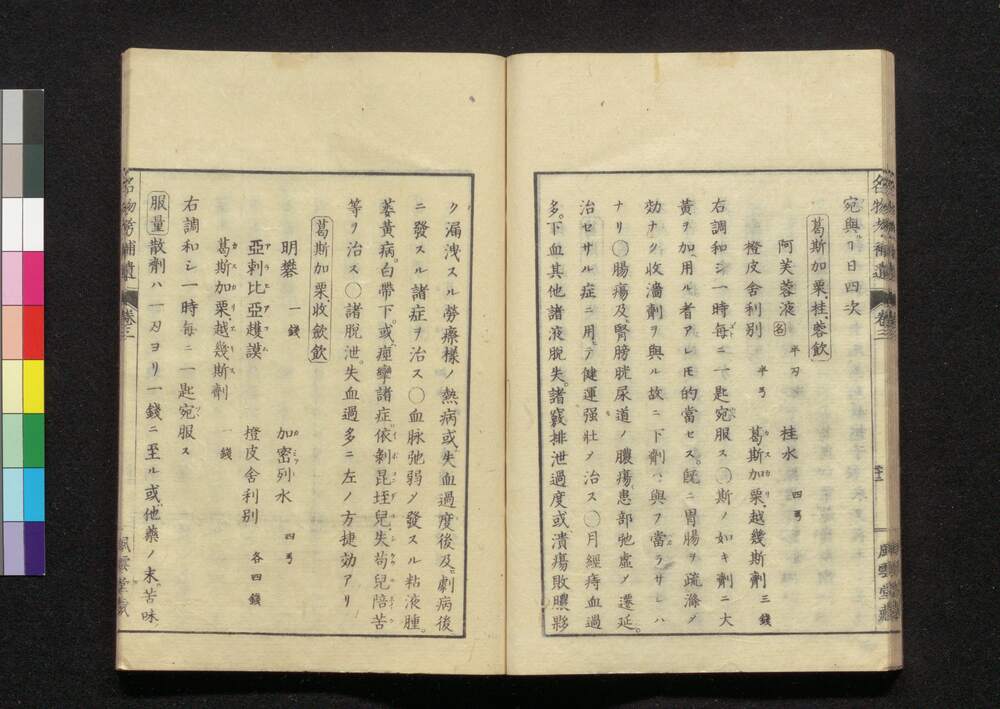 宛與フ日四次
葛斯加栗桂蓉飲
阿芙蓉液 名 半刄 桂水 四弓
橙皮舎利別 半弓 葛斯加栗越幾斯劑 三錢
右調和シ一時毎ニ一匙宛服ス○斯ノ如キ劑ニ大
黄ヲ加用ル者アレㇳモ的當セス既ニ胃腸ヲ疏滌メ
効ナク收濇劑ヲ與ル故ニ下劑ハ與フ當ラサレハ
ナリ○腸瘍及腎膀胱尿道ノ膿瘍患部弛虚メ遷延
治セサル症ニ用テ健運强壯ヲ治ス○月經痔血過
多下血其他諸液脱失諸竅排泄過度或潰瘍敗膿夥
名物考補遺 卷三 十二 風雲堂藏
ク漏洩スル勞瘵樣ノ熱病或失血過度後及劇病後
ニ發スル諸症ヲ治ス○血脉弛弱ヲ發スル粘液腫
萎黄病白帶下或痙攣諸症依剝昆垤兒失苟兒陪苦
等ヲ治ス○諸脱泄失血過多ニ左ノ方捷効アリ
葛斯加栗收歛飲
明礬 一錢 加密列水 四弓
亞剌比亞護謨 橙皮舎利別 各四錢
葛斯加栗越幾斯劑 一錢
右調和シ一時毎ニ一匙宛服ス
服量 散劑ハ一刄ヨリ一錢ニ至ル或他藥ノ末苦味
名物考補遺 卷三 風雲堂藏